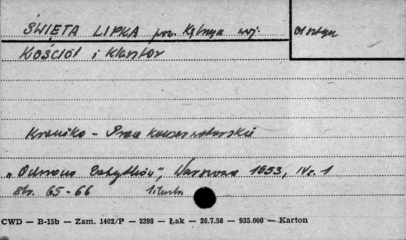 ŚWIĘTA LIPKA pow. Kętrzyn woj. Olsztyn
KOŚCIÓŁ i klasztor
Kronika - Prace konserwatorskie
"Ochrona Zabytków", Warszawa 1953, Nr. 1
str. 65-66
CWD — B-15b — Zam. 1402/P — 3398 — Łak — 26.7.58 — 935.000 — Karton